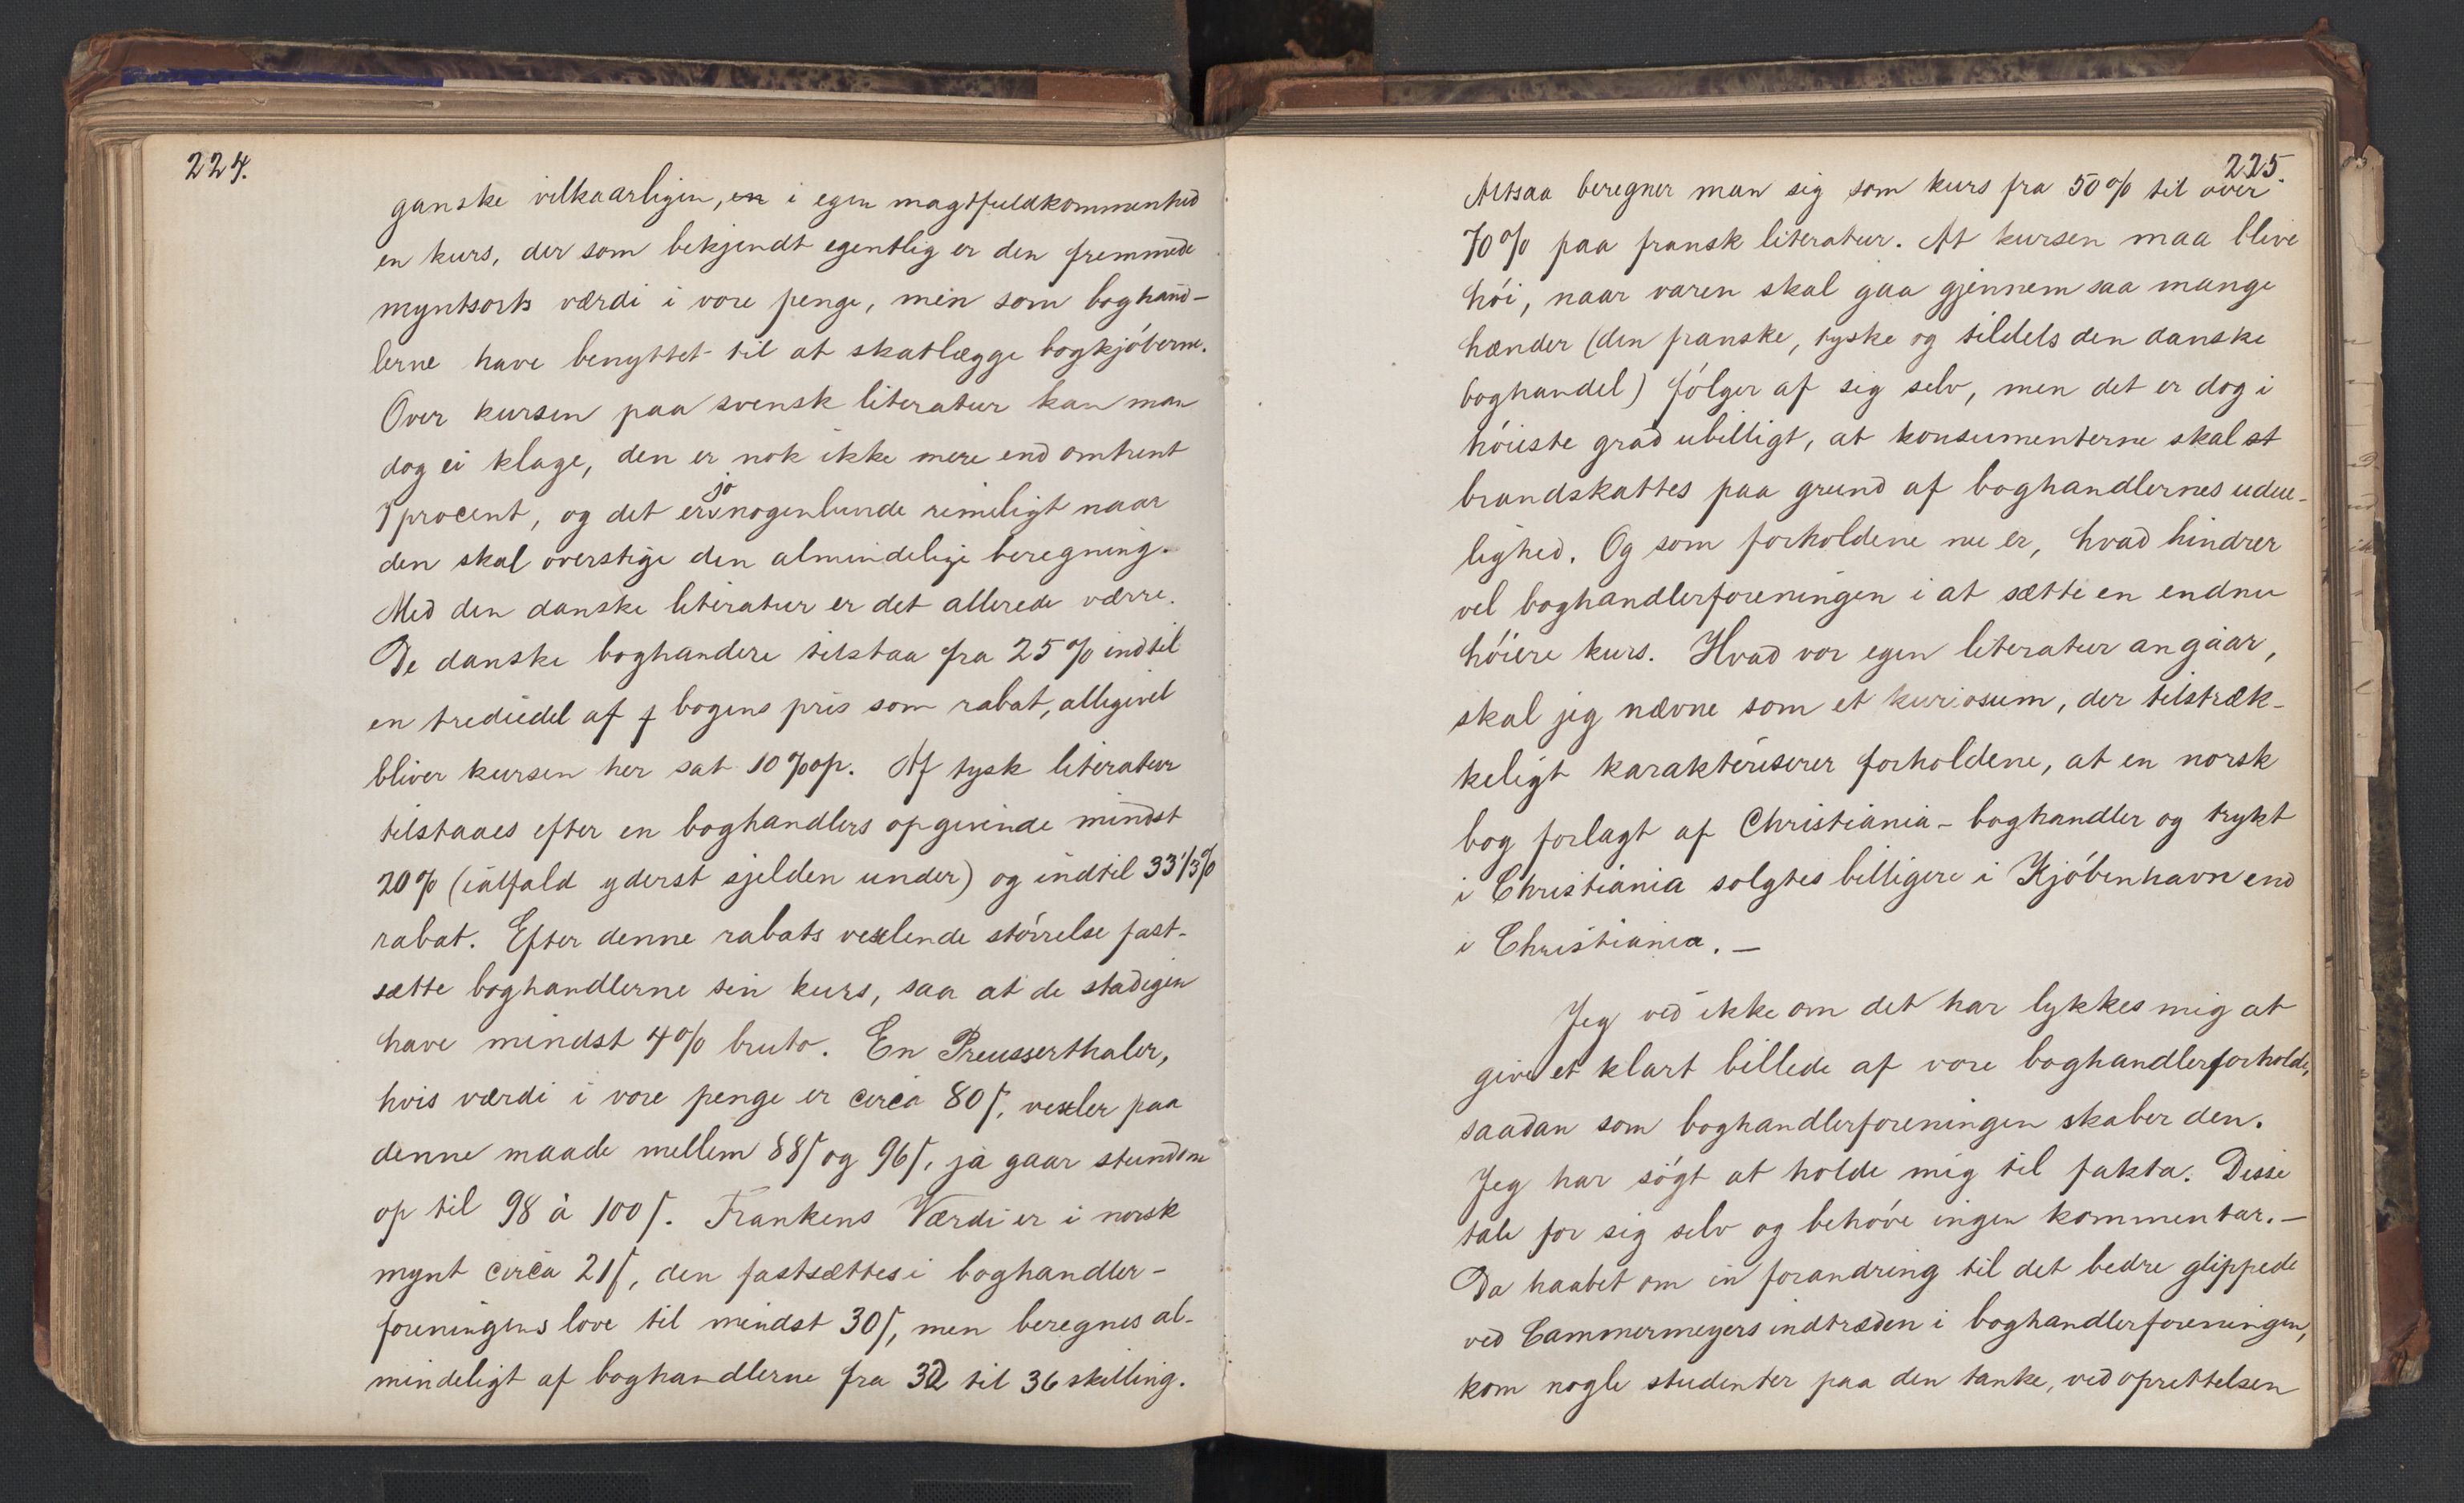 224.
ganske vilkaarligen, en i egen magtfuldkommenhed
en kurs, der som bekjendt egentlig er den fremmede
myntsorts værdi i vore penge, men som boghand-
lerne have benyttet til at skatlægge bogkjøberne.
Over kursen paa svensk literatur kan man
dog ei klage, den er nok ikke mere end omtrent
1 procent, og det er jo nogenlunde rimeligt naar
den skal overstige den almindelige beregning.
Med den danske literatur er det allerede værre.
De danske boghandere tilstaa fra 25 % indtil
en trediedel af f bogens pris som rabat, alligevel
bliver kursen her sat 10 % op. Af tysk literatur
tilstaaes efter en boghandlers opgivende mindst
20 % (ialfald yderst sjelden under) og indtil 33 1/3 %
rabat. Efter denne rabats vexlende størrelse fast-
sætte boghandlerne sin kurs, saa at de stadigen
have mindst 4 % bruto. En Preusserthaler,
hvis værdi i vore penge er circa 80 ſ, vexler paa
denne maade mellem 88 ſ og 96 ſ, ja gaar stundom
op til 98 à 100 ſ. Frankens Værdi er i norsk
mynt circa 21 ſ, den fastsættes i boghandler-
foreningens love til mindst 30 ſ, men beregnes al-
mindeligt af boghandlerne fra 32 til 36 skilling.
225.
Altsaa beregner man sig som kurs fra 50 % til over
70 % paa fransk literatur. At kursen maa blive
høi, naar varen skal gaa gjennem saa mange
hænder (den franske, tyske og tildels den danske
boghandel) følger af sig selv, men det er dog i
høieste grad ubilligt, at konsumenterne skal st
brandskattes paa grund af boghandlernes udue-
lighed. Og som forholdene nu er, hvad hindrer
vel boghandlerforeningen i at sætte en endnu
høiere kurs. Hvad vor egen literatur angaar,
skal jeg nævne som et kuriosum, der tilstræk-
keligt karakteriserer forholdene, at en norsk
bog forlagt af Christiania-boghandler og trykt
i Christiania solgtes billigere i Kjøbenhavn end
i Christiania. —
Jeg ved ikke om det har lykkes mig at
give et klart billede af vore boghandlerforholde,
saadan som boghandlerforeningen skaber den.
Jeg har søgt at holde mig til fakta. Disse
tale for sig selv og behøve ingen kommentar. —
Da haabet om en forandring til det bedre glippede
ved Cammermeyers indtræden i boghandlerforeningen,
kom nogle studenter paa den tanke, ved oprettelsen